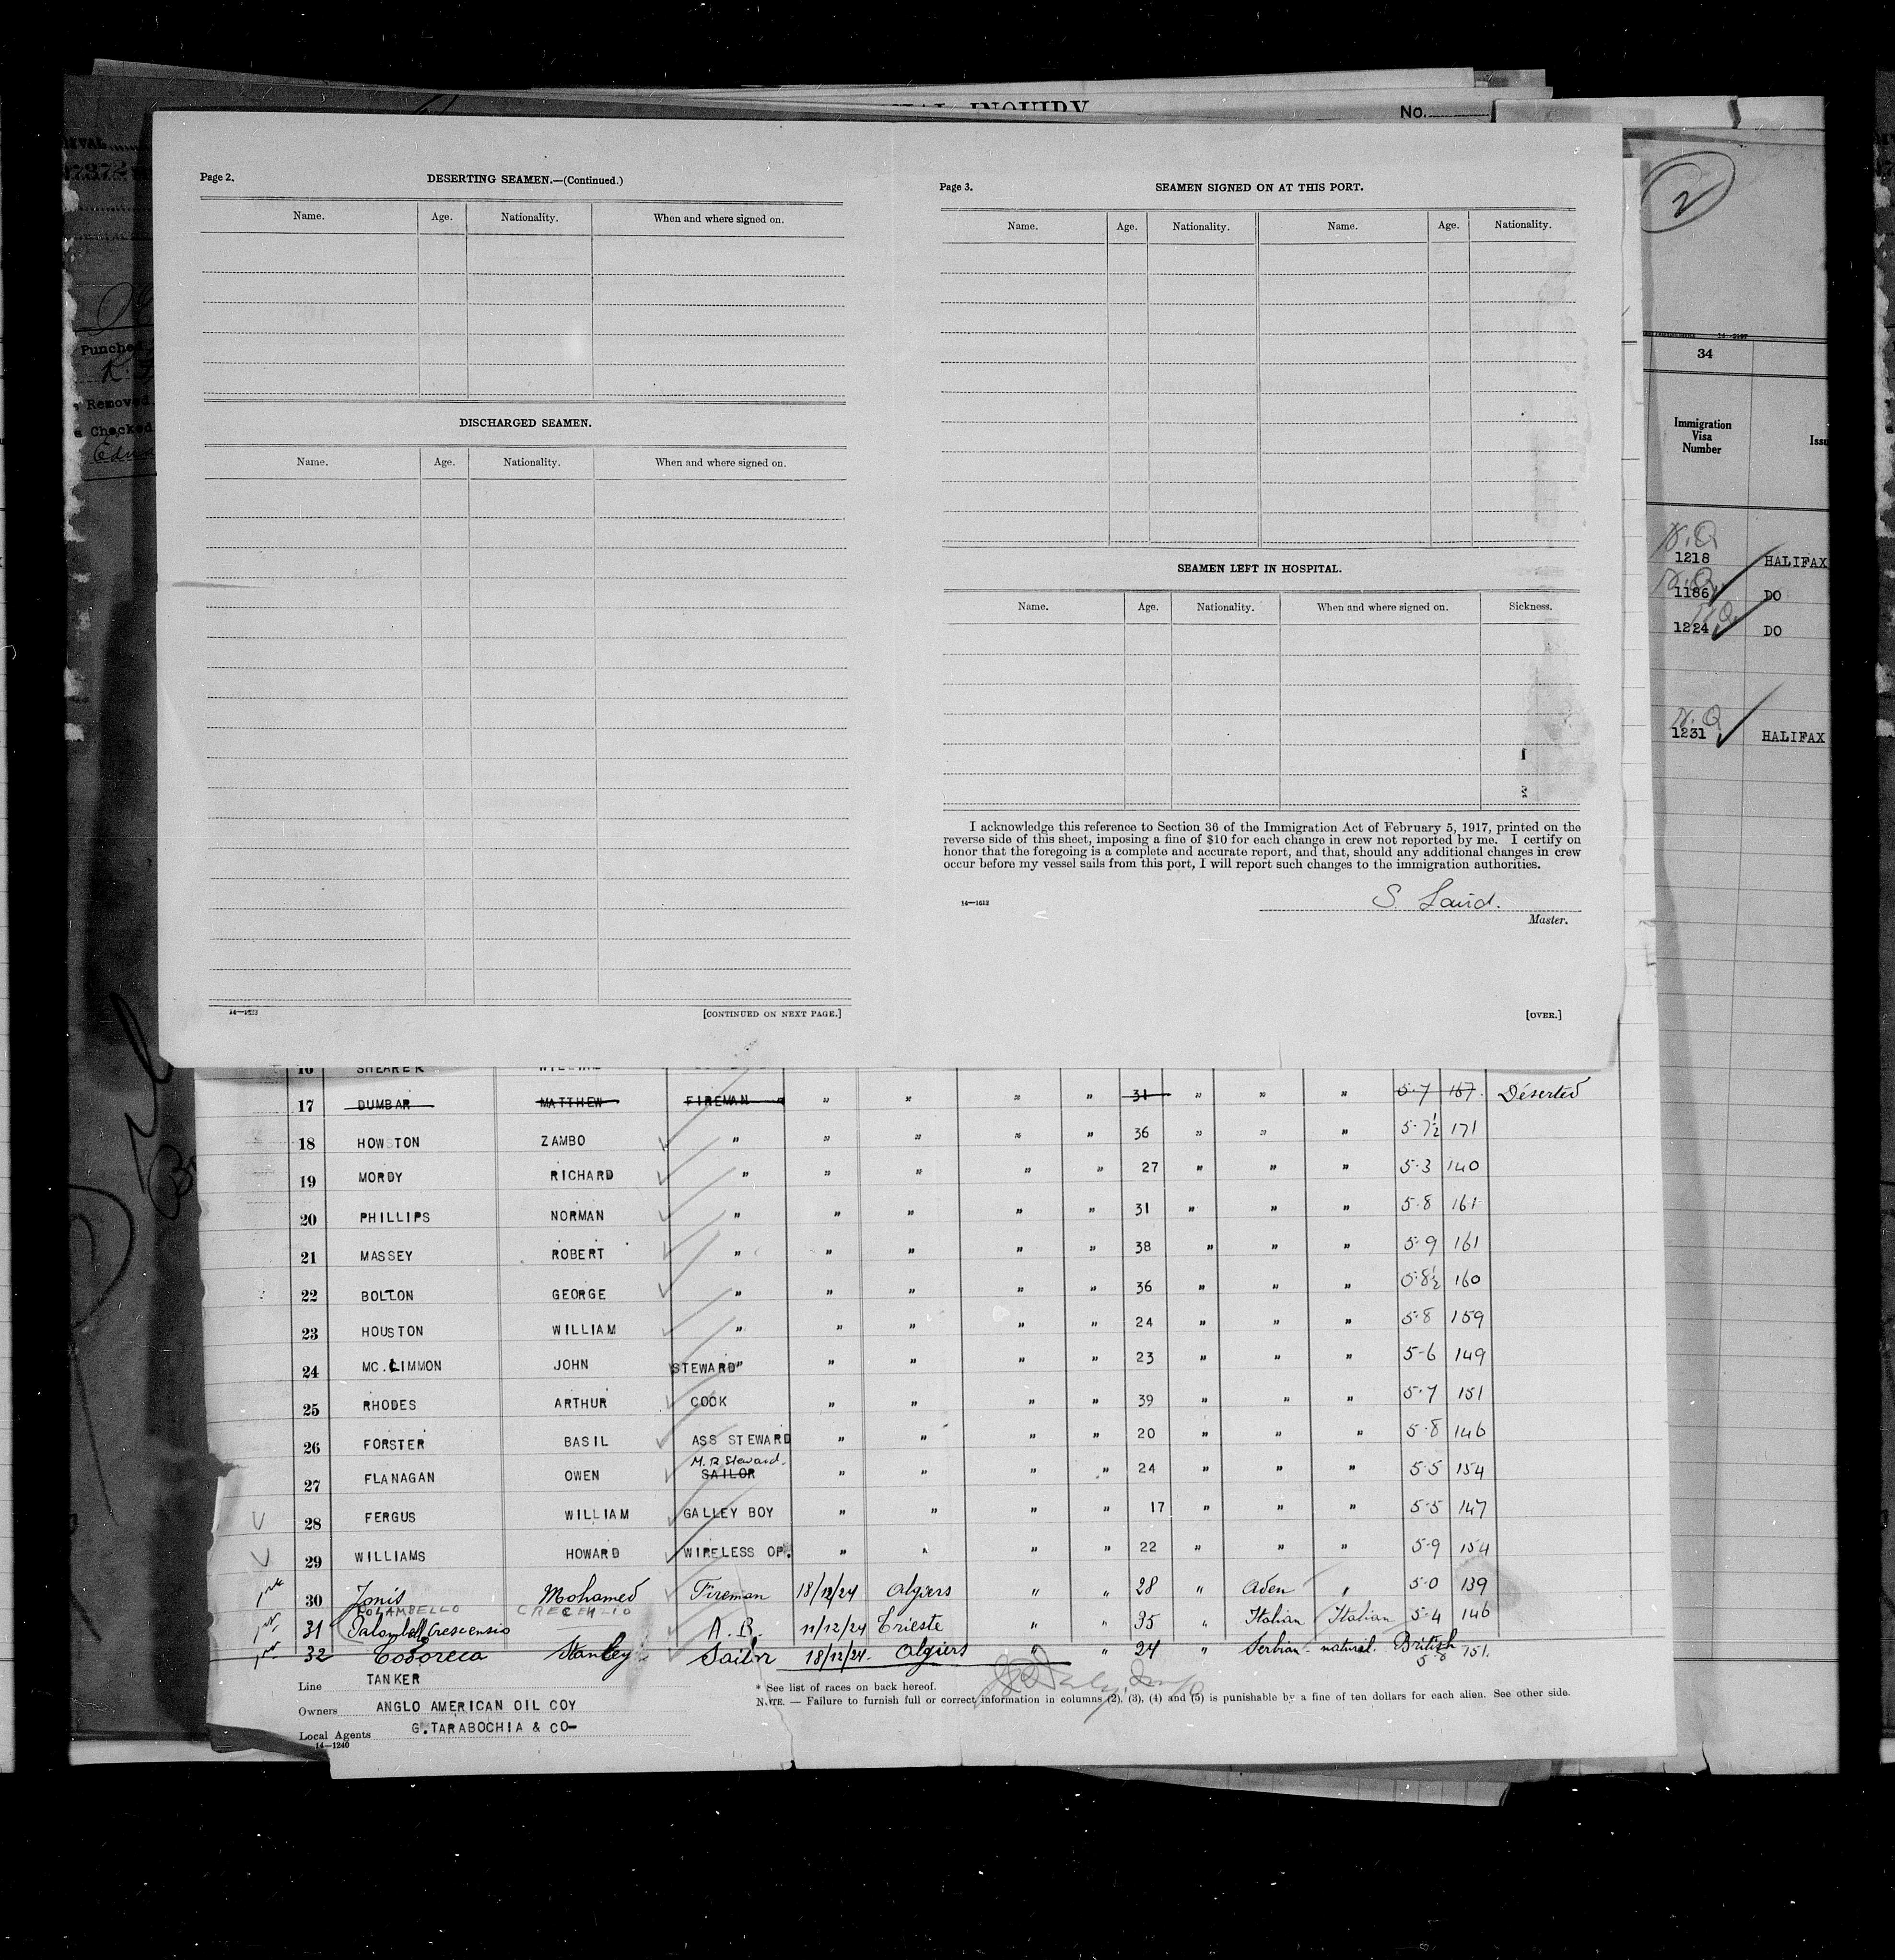 INQUIRY
No.
Page 2.
DESERTING SEAMEN.—(Continued.)
Name. Age. Nationality. When and where signed on.
DISCHARGED SEAMEN.
Name. Age. Nationality. When and where signed on.
14—1623 [CONTINUED ON NEXT PAGE.]
Page 3.
SEAMEN SIGNED ON AT THIS PORT.
Name. Age. Nationality. Name. Age. Nationality.
SEAMEN LEFT IN HOSPITAL.
Name. Age. Nationality. When and where signed on. Sickness.
I acknowledge this reference to Section 36 of the Immigration Act of February 5, 1917, printed on the
reverse side of this sheet, imposing a fine of $10 for each change in crew not reported by me. I certify on
honor that the foregoing is a complete and accurate report, and that, should any additional changes in crew
occur before my vessel sails from this port, I will report such changes to the immigration authorities.
S. Laird.
14—1613
Master.
[OVER.]
Punched
Removed
Checked
2
34
Immigration
Visa
Number
1218 HALIFAX
1186 DO
1224 DO
1231 HALIFAX
16 SHEARER
17 DUMBAR MATTHEW FIREMAN " " " " 31 " " " 5-7 167. Deserted
18 HOWSTON ZAMBO " " " " " 36 " " " 5-7½ 171
19 MORDY RICHARD " " " " " 27 " " " 5-3 140
20 PHILLIPS NORMAN " " " " " 31 " " " 5-8 161
21 MASSEY ROBERT " " " " " 38 " " " 5-9 161
22 BOLTON GEORGE " " " " " 36 " " " 5-8½ 160
23 HOUSTON WILLIAM " " " " " 24 " " " 5-8 159
24 MC.LIMMON JOHN STEWARD" " " " " 23 " " " 5-6 149
25 RHODES ARTHUR COOK " " " " 39 " " " 5-7 151
26 FORSTER BASIL ASS STEWARD " " " " 20 " " " 5-8 146
M.R. Steward.
27 FLANAGAN OWEN SAILOR " " " " 24 " " " 5-5 154
28 FERGUS WILLIAM GALLEY BOY " " " " 17 " " " 5-5 147
29 WILLIAMS HOWARD WIRELESS OP. " " " " 22 " " " 5-9 154
30 Jonis Mohamed Fireman 18/12/24 Algiers " " 28 " Aden " 5-0 139
31 Palombella Crescensio A.B. 11/12/24 Trieste " " 35 " Italian Italian 5-4 146
32 Todoreca Stanley Sailor 18/12/24. Algiers " " 24 " Serbian - natural. British 5-8 151.
Line TANKER
Owners ANGLO AMERICAN OIL COY
Local Agents G.TARABOCHIA & CO-
14—1240
* See list of races on back hereof.
NOTE. — Failure to furnish full or correct information in columns (2), (3), (4) and (5) is punishable by a fine of ten dollars for each alien. See other side.